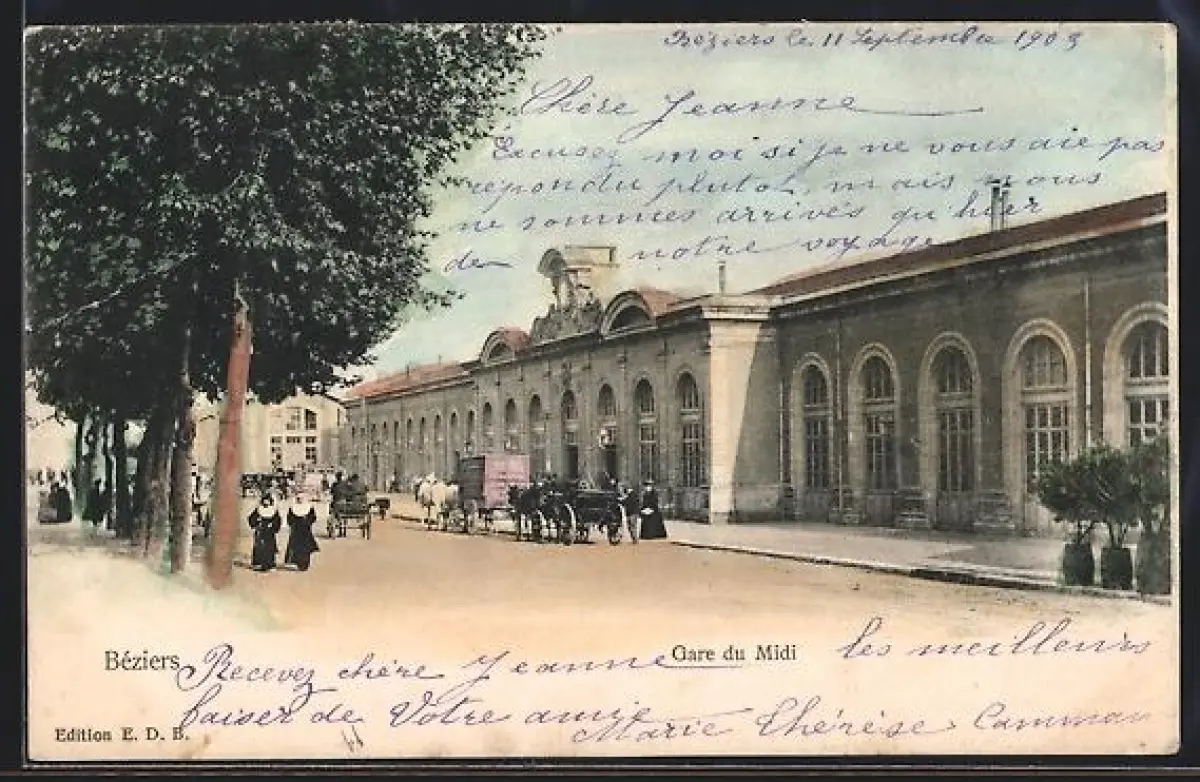 Béziers le 11 Septembre 1903
Chère Jeanne
Excusez moi si je ne vous aie pas
répondu plutot, mais nous
ne sommes arrivés qu'hier
de notre voyage
Béziers
Gare du Midi
les meilleurs
Recevez chère Jeanne
baiser de Votre amie Marie Thérèse Camman
Edition E. D. B.